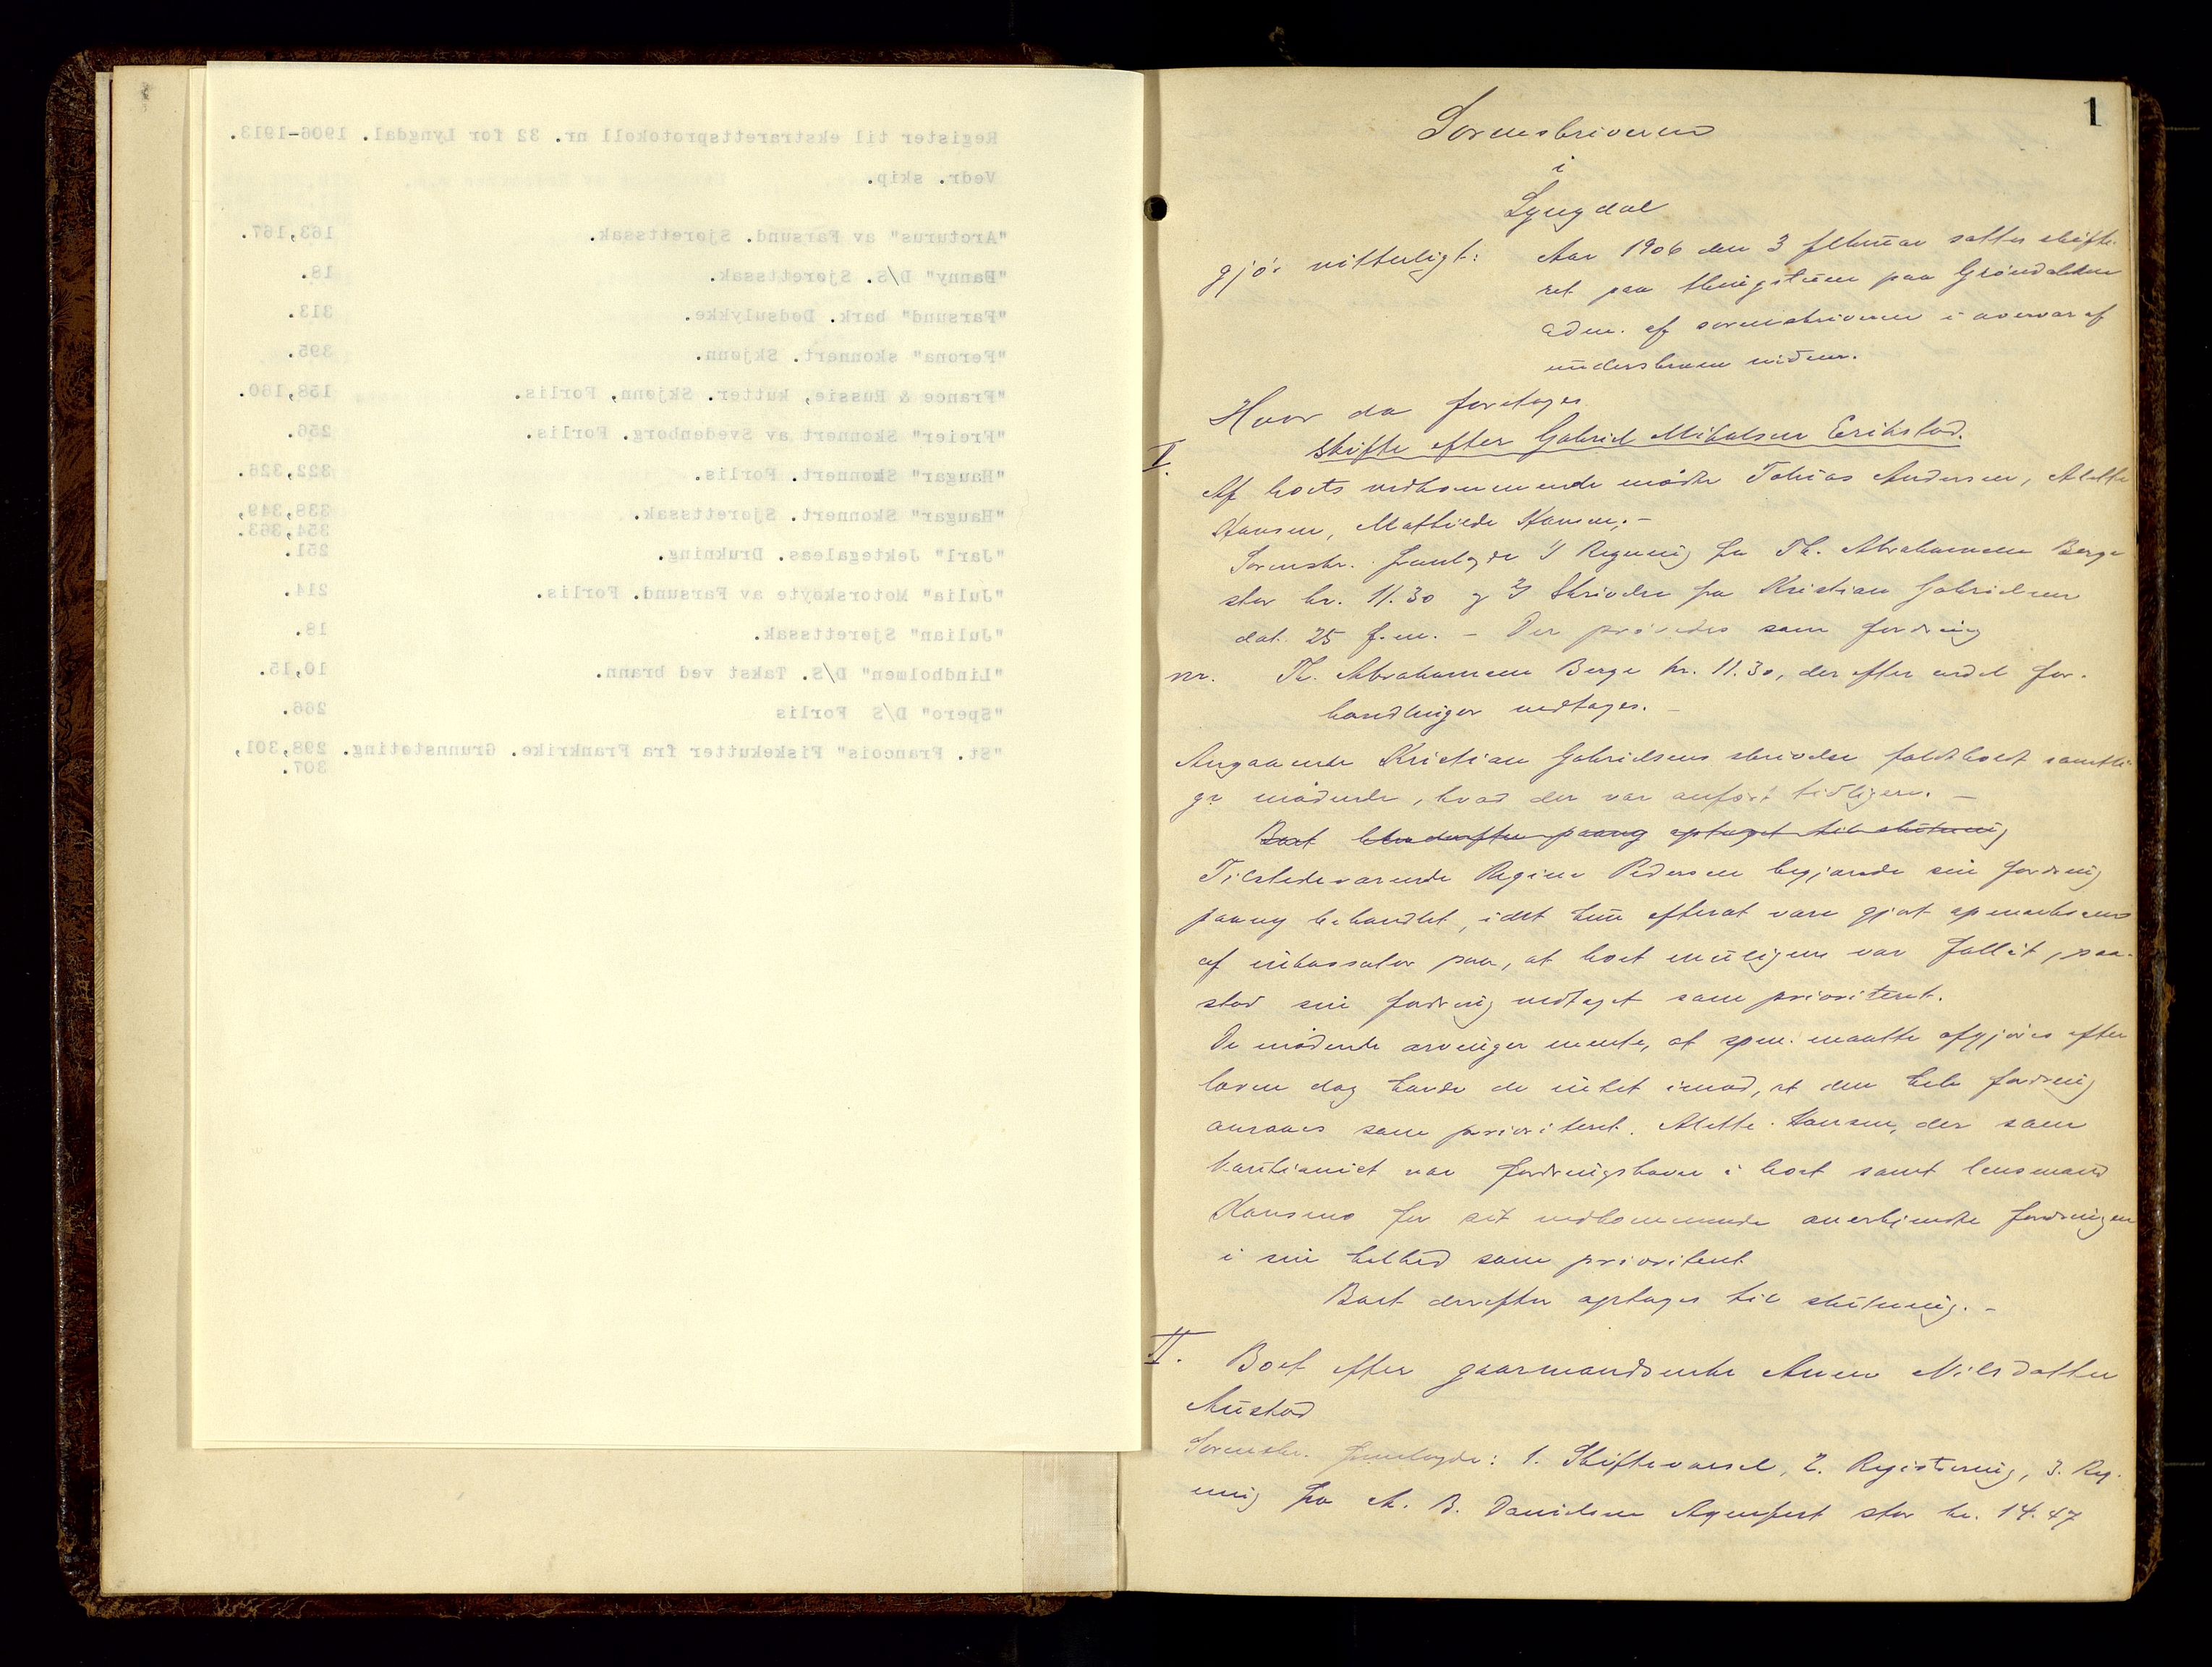 Register til ekstrarettsprotokoll nr. 32 for Lyngdal. 1906-1913.
Vedr. skip.
"Arcturus" av Farsund. Sjørettssak. 163,167.
"Danny" D/S. Sjørettssak. 18.
"Farsund" bark. Dødsulykke. 313.
"Ferona" skonnert. Skjønn. 395.
"France & Russie, kutter. Skjønn, Forlis. 158,160.
"Freier" Skonnert av Svedenborg. Forlis. 256.
"Haugar" Skonnert. Forlis. 322,326.
"Haugar" Skonnert. Sjørettssak. 338,349,
354,363.
"Jarl" Jektegaleas. Drukning. 251.
"Julia" Motorskøyte av Farsund. Forlis. 214.
"Julian" Sjørettssak. 18.
"Lindholmen" D/S. Takst ved brann. 10,15.
"Spero" D/S Forlis 266.
"St. Francois" Fiskekutter fra Frankrike. Grunnstøting. 298,301,
307.
1
Sorenskriveren
i
Lyngdal
gjør vitterligt: Aar 1906 den 3 februar sattes skifte-
ret paa thingstuen paa Grøndokken
adm. af sorenskriveren i overvær af
underskrevne vidner.
Hvor da foretoges
I. Skifte efter Gabriel Mikalsen Erikstad.
Af boets vedkommende mødte Tobias Andersen, Alette
Hansen, Mathilde Hansen.-
Sorenskr. fremlagde 1) Regning fra Th. Abrahamsen Berge
stor kr. 11.30 og 2) Skrivelse fra Kristian Gabrielsen
dat. 25 f.m. - Der prøvedes som fordring
nr. Th. Abrahamsen Berge kr. 11.30, der efter endel for-
handlinger vedtages. -
Angaaende Kristian Gabrielsens skrivelse fastholdt samtli-
ge mødende, hvad der var anført tidligere. -
Boet blev derefter paany optaget til slutning
Tilstedeværende Regine Pedersen begjærede sin fordring
paany behandlet, idet hun efterat være gjort opmærksom
af inkassator paa, at boet muligens var fallit, paa-
stod sin fordring vedtaget som prioriteret.
De mødende arvinger mente, at spm. maatte afgjøres efter
loven dog havde de intet imod, at den hele fordring
ansaaes som prioriteret. Alette Hansen, der som
kautionist var fordringshaver i boet samt lensmand
Hansens for sit vedkommende anerkjendte fordringen
i sin helhed som prioriteret
Boet derefter optages til slutning. -
II. Boet efter gaardmandsenke Anne Nilsdatter
Austad
Sorenskr. fremlagde: 1. Skiftevarsel, 2. Registrering, 3. Reg-
ning fra A. B. Danielsen Agnefest stor kr. 14.47